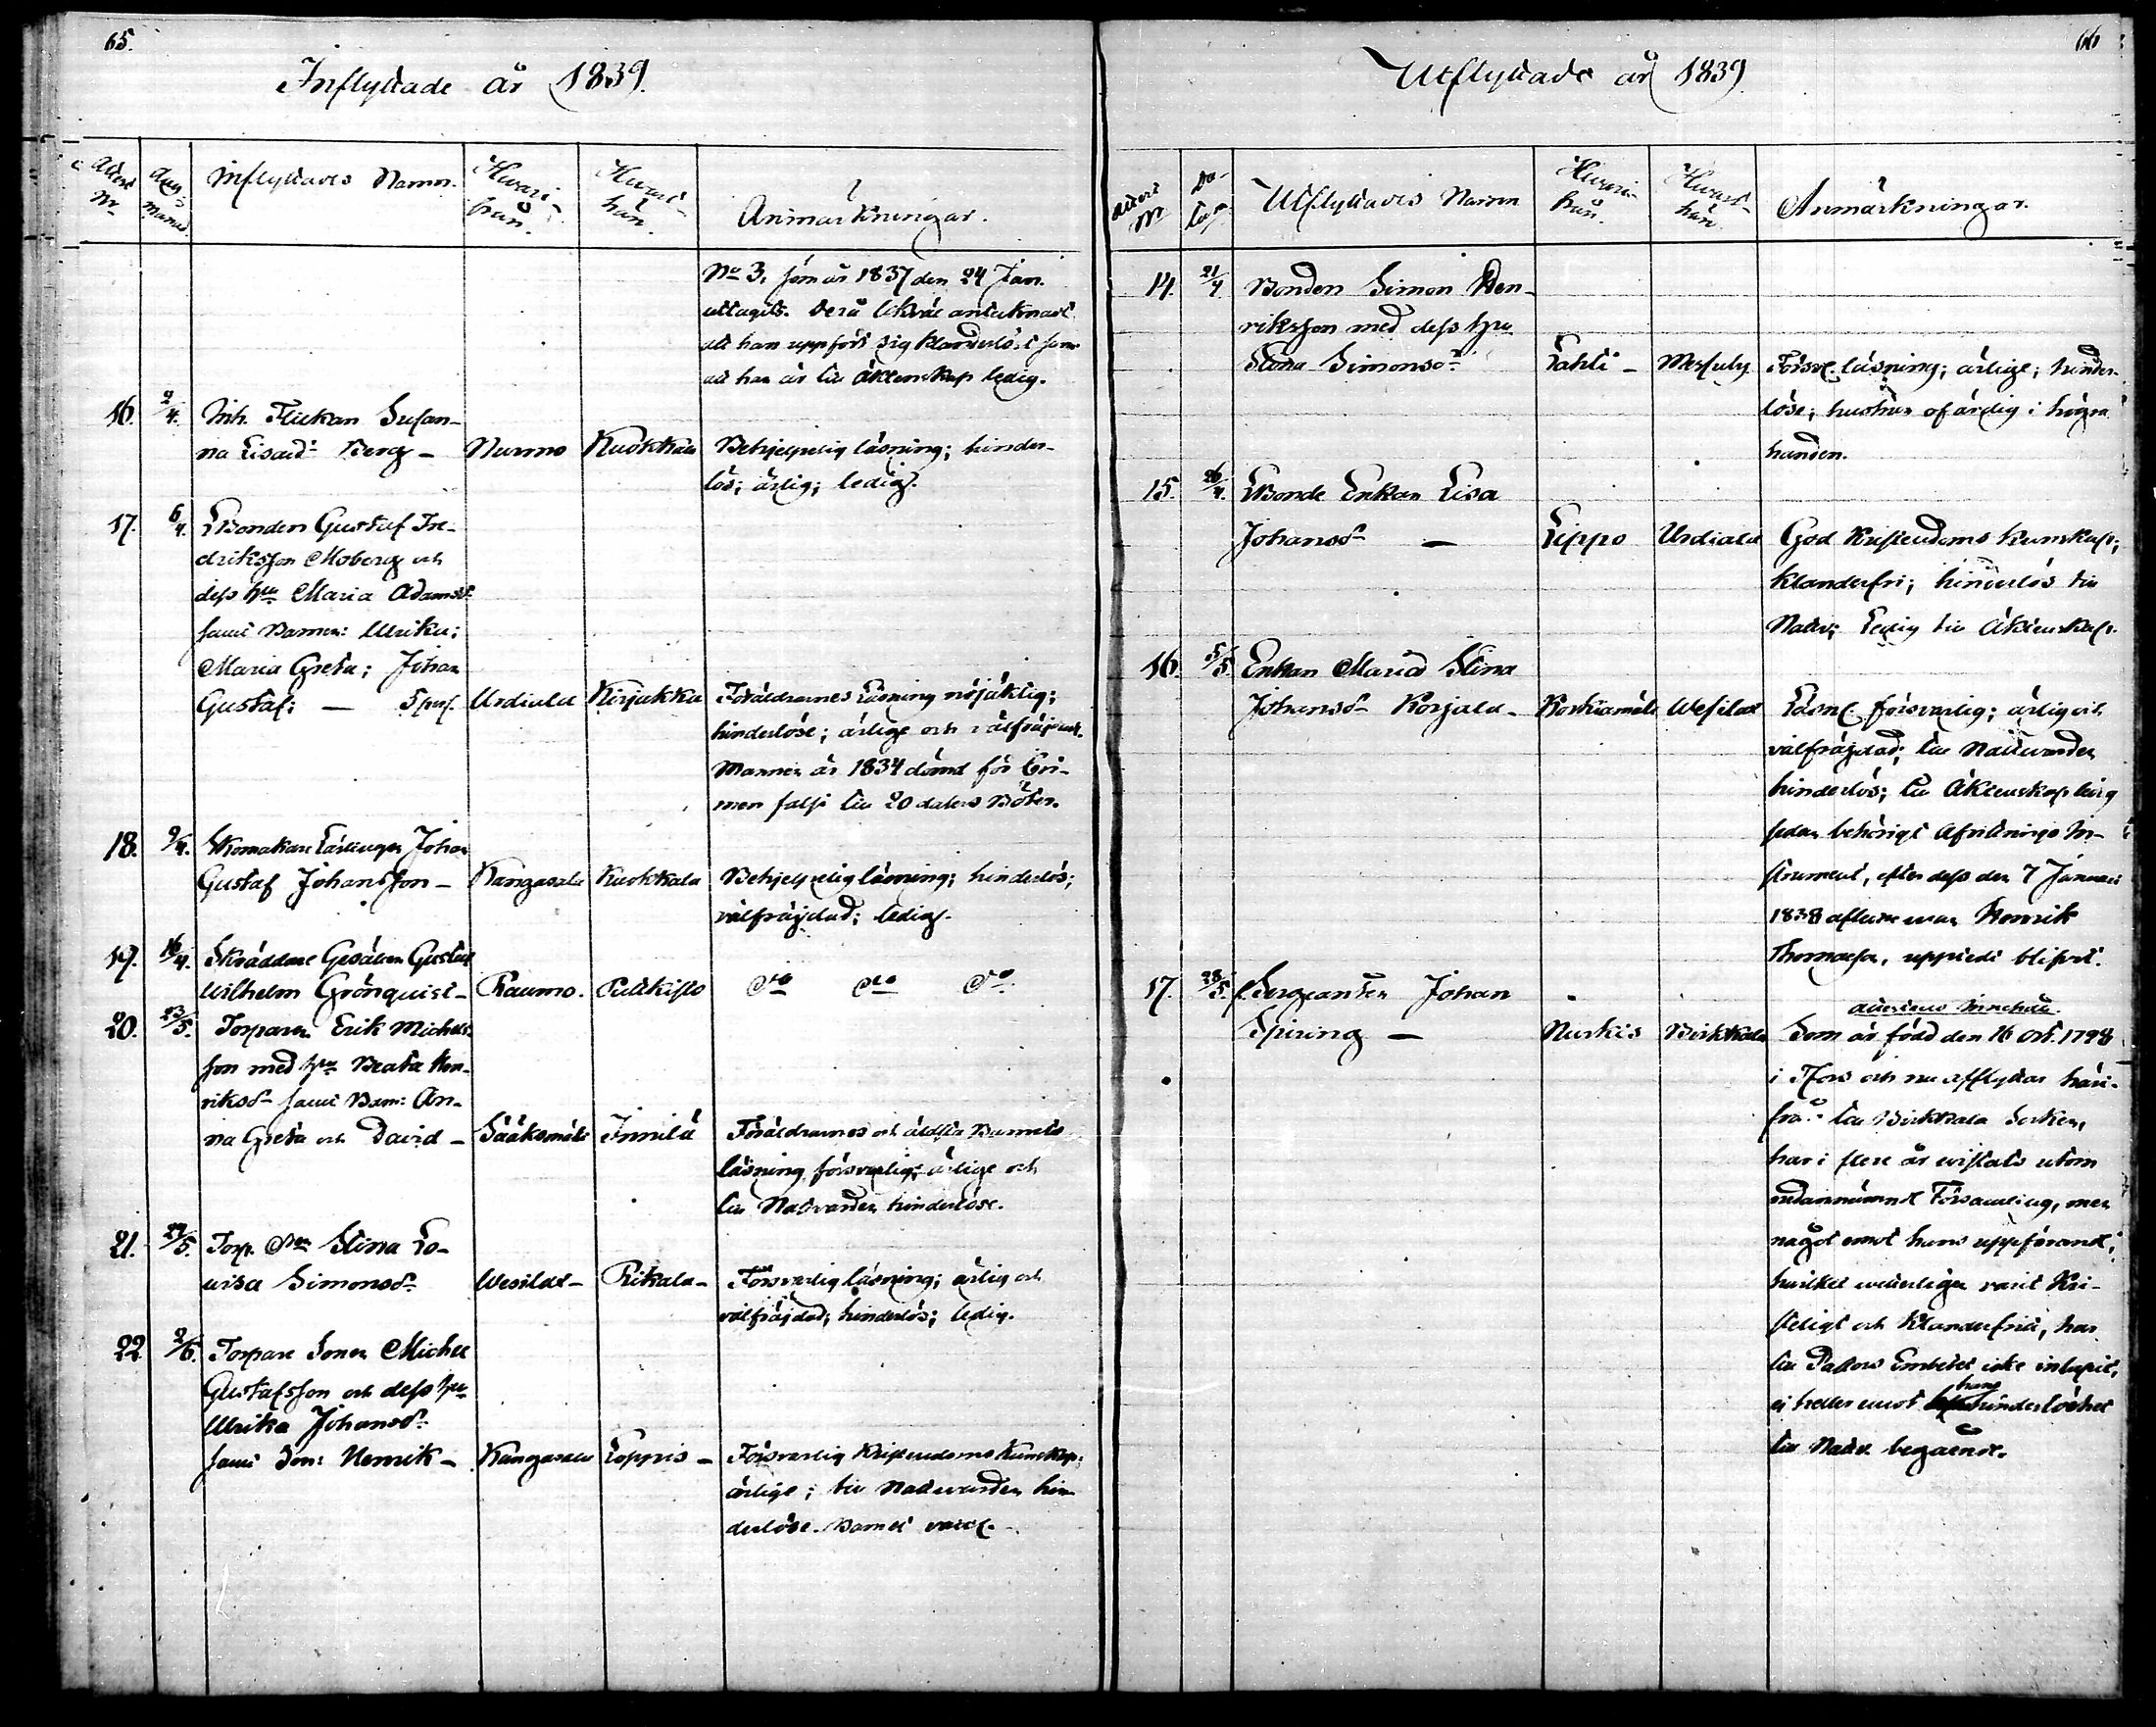 65.
Inflyttade år 1839.
Attest
Nr
Dag o
Månad.
Inflyttades Namn.
Hvari-
från.
Hvart-
hän.
Anmärkningar.
No 3, som år 1837 den 24 Jan.
uttagits. likväl antecknadt
att han uppfört sig klanderlöst samt
att han är till Äktenskap ledig.
16. 2/4. Inh. Flickan Susan-
na Lisa Berg - Nurmo Kuokkala Behjelpelig läsning; hinder-
lös; ärlig; ledig.
17. 6/4. Bonden Gustaf Fre-
driksson Moberg och
dess hu Maria Adamsdr
samt Barnen: Ulrika;
Maria Greta; Johan
Gustaf; — 5 pers. Urdiala Kirjakka Föräldrarnes Läsning nöjaktig;
hinderlöse; ärlige och välfräjdade.
Mannen år 1834 dömd för Cri-
men falsi till 20 dalers Böter.
18. 9/4. Skomakare Lärlingen Johan
Gustaf Johansson - Kangasala Kuokkala Behjelpelig läsning; hinderlös;
välfräjdad; ledig.
19. 16/4. Skräddare Gesällen Gustaf
Wilhelm Grönquist - Raumo. Pullkisto do do do
20. 23/5. Torparen Erik Michels-
son med hu Beata Hen-
riksdr samt Barn: An-
na Greta och David - Sääksmäki Innilä Föräldrarnes och äldsta Barnets
läsning försvarlig; ärlige och
till Nattvarden hinderlöse.
21. 27/5. Torp. Stina Lo-
visa Simonsdr Wesilax - Rikala - Försvarlig läsning; ärlig och
välfräjdad; hinderlös; ledig.
22. 2/6. Torpare Sonen Michel
Gustafsson och dess hu
Ulrika Johansdr
samt Son: Henrik - Kangasala Loppis - Försvarlig Kristendoms Kunskap;
ärlige; till Nattvarden hin-
derlöse. Barnet
66
Utflyttade år 1839.
Attest
Nr
Da-
tum
Utflyttades Namn
Hvari-
från.
Hvart-
hän.
Anmärkningar.
14. 21/4. Bonden Simon Hen-
riksson med dess hu
Stina Simonsdr Lahti - Messuby Försv. läsning; ärlige; hinder-
löse; hustrun ofärdig i högra
handen.
15. 26/4. Bonde Enkan Lisa
Johansdr — Lippo Urdiala God Kristendoms kunskap;
klanderfri; hinderlös till
Nattv; Ledig till Äktenskap.
16. 5/5. Enkan Maria Stina
Johansdr Korjala - Koskiamäki Wesilax Läsn. försvarlig; ärlig och
välfräjdad; till Nattvarden
hinderlös; till Äktenskap ledig
sedan behörigt Afvittnings In-
strument, efter dess den 7 Januari
1838 aflidne man Henrik
Thomasson, upprättadt blifvit.
17. 28/5. Sergeanten Johan
Spiring — Nurkis Birkkala attestens Innehåll.
Som är född den 16 Oct. 1798
i Hfors och nu afflyttar häri-
från till Birkkala Socken,
har i flere år vistats utom
endannämnde Församling, men
något emot hans uppförande,
hvilket varit Kri-
steligt och Klanderfritt, har
till Pastors Embetet icke inlupit,
ej heller emot hans hinderlöshet
till Nattv. begående.